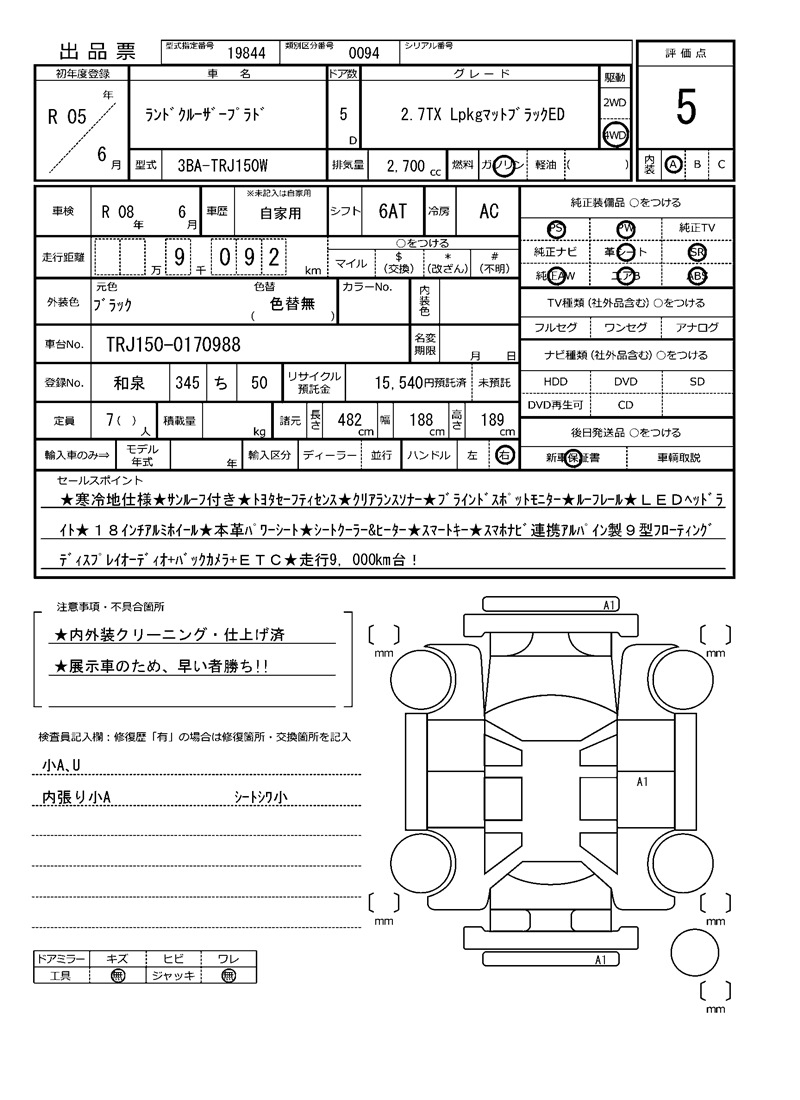 出品票 型式指定番号 19844 類別区分番号 0094 シリアル番号
評価点
5
内装 A B C
初年度登録 車名 ドア数 グレード 駆動
R 05 年 6 月 ランドクルーザープラド 5 D 2.7TX LpkgマットブラックED 2WD 4WD
型式 3BA-TRJ150W 排気量 2,700 cc 燃料 ガソリン 軽油 ( )
車検 R 08 年 6 月 車歴 ※未記入は自家用 自家用 シフト 6AT 冷房 AC
走行距離 万 9 千 0 9 2 km ○をつける マイル $(交換) *(改ざん) #(不明)
外装色 元色 ブラック 色替 ( 色替無 ) カラーNo. 内装色
車台No. TRJ150-0170988 名変期限 月 日
登録No. 和泉 345 ち 50 リサイクル預託金 15,540円預託済 未預託
定員 7( ) 人 積載量 kg 諸元 長さ 482 cm 幅 188 cm 高さ 189 cm
輸入車のみ⇒ モデル年式 年 輸入区分 ディーラー 並行 ハンドル 左 右
純正装備品 ○をつける
PS PW 純正TV
純正ナビ 革シート SR
純正AW エアB ABS
TV種類(社外品含む)○をつける
フルセグ ワンセグ アナログ
ナビ種類(社外品含む)○をつける
HDD DVD SD
DVD再生可 CD
後日発送品 ○をつける
新車保証書 車輌取説
セールスポイント
★寒冷地仕様★サンルーフ付き★トヨタセーフティセンス★クリアランスソナー★ブラインドスポットモニター★ルーフレール★ＬＥＤヘッドラ
イト★１８インチアルミホイール★本革パワーシート★シートクーラー&ヒーター★スマートキー★スマホナビ連携アルパイン製９型フローティング
ディスプレイオーディオ+バックカメラ+ＥＴＣ★走行9, 000km台！
注意事項・不具合箇所
★内外装クリーニング・仕上げ済
★展示車のため、早い者勝ち!!
検査員記入欄：修復歴「有」の場合は修復箇所・交換箇所を記入
小A、U
内張り小A シートシワ小
ドアミラー キズ ヒビ ワレ
工具 無 ジャッキ 無
A1
mm mm
A1
mm mm
A1
mm